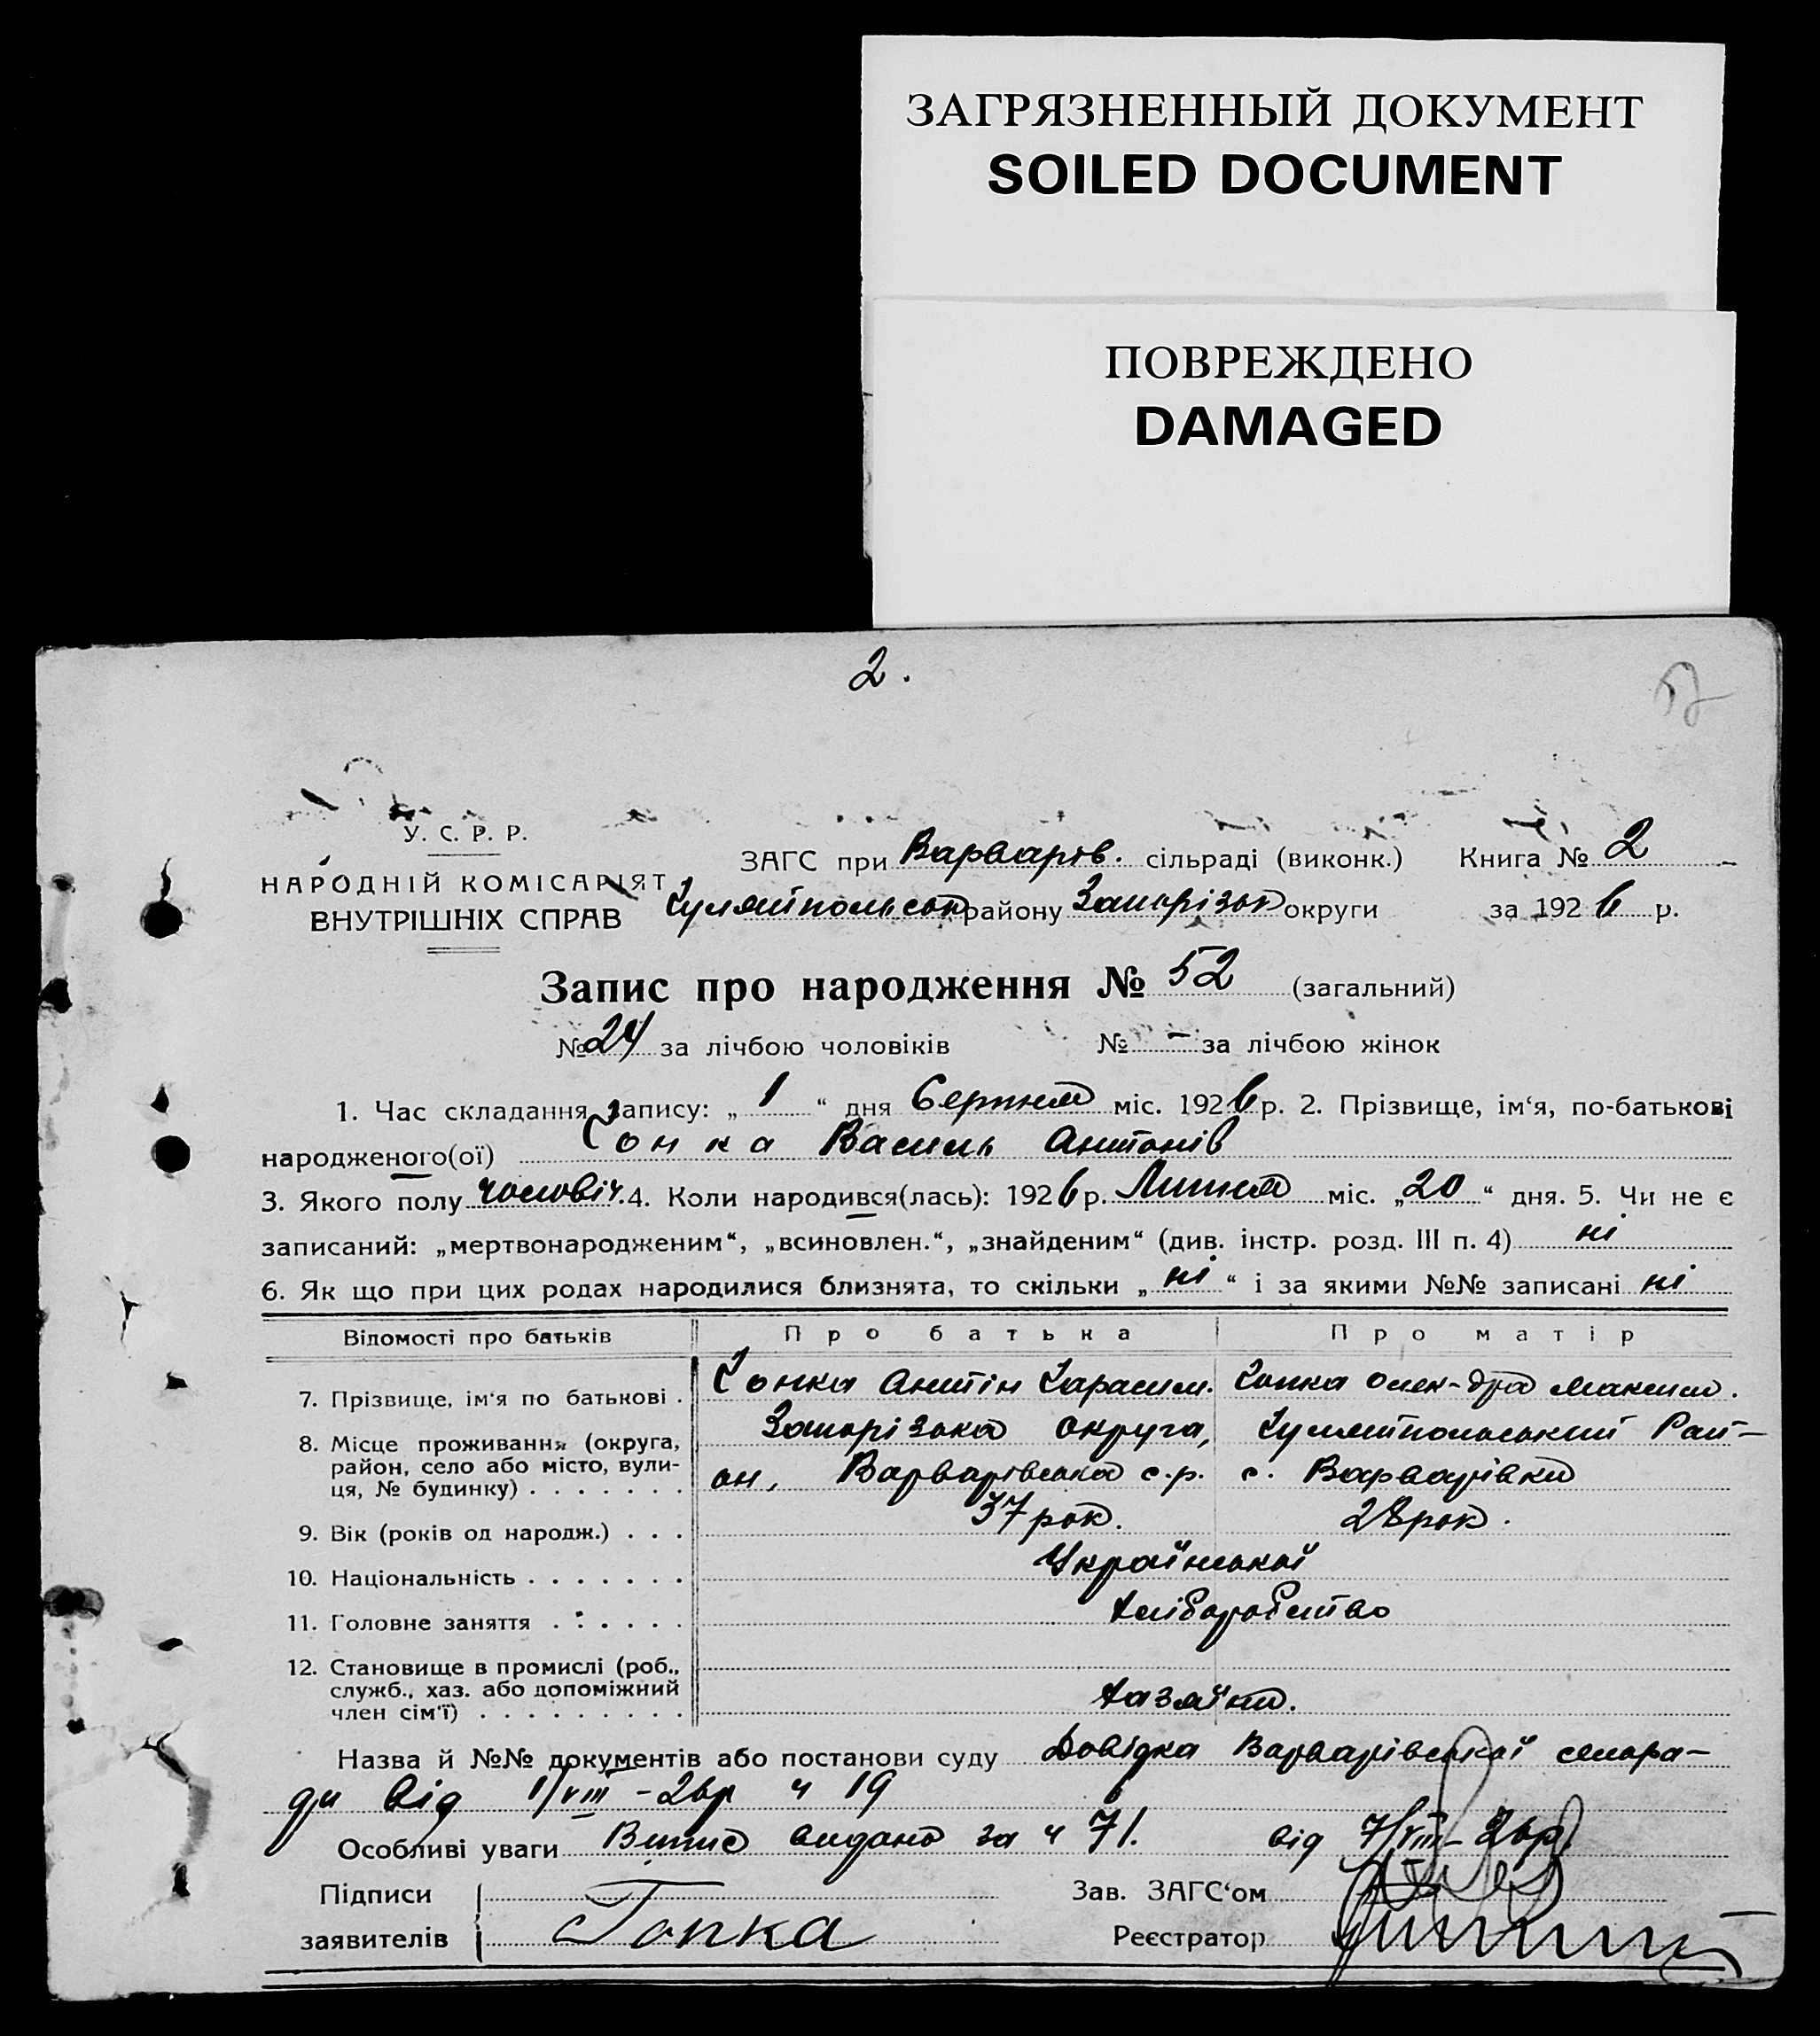 ЗАГРЯЗНЕННЫЙ ДОКУМЕНТ
SOILED DOCUMENT
ПОВРЕЖДЕНО
DAMAGED
2.
52
У. С. Р. Р.
НАРОДНІЙ КОМІСАРІЯТ
ВНУТРІШНІХ СПРАВ
ЗАГС при Варварів. сільраді (виконк.) Книга № 2
Гуляйпольськ району Запорізьк округи за 1926 р.
Запис про народження № 52 (загальний)
№ 24 за лічбою чоловіків № – за лічбою жінок
1. Час складання запису: „ 1 “ дня Серпня міс. 1926 р. 2. Прізвище, ім‘я, по-батькові
народженого(ої) Гопка Василь Антонів
3. Якого полу чоловіч. 4. Коли народився(лась): 1926 р. Липня міс. „20“ дня. 5. Чи не є
записаний: „мертвонародженим“, „всиновлен.“, „знайденим“ (див. інстр. розд. III п. 4) ні
6. Як що при цих родах народилися близнята, то скільки „ ні “ і за якими №№ записані ні
Відомості про батьків Про батька Про матір
7. Прізвище, ім‘я по батькові . Гопка Антін Гарасим. Гопка Олек-дра Максим.
8. Місце проживання (округа, Запорізька округа, Гуляйпольський Рай-
район, село або місто, вули- он, Варварівська с.р. с. Варварівки
ця, № будинку) . . . . . . .
9. Вік (років од народж.) . . . 37 рок. 28 рок.
10. Національність . . . . . . . Української
11. Головне заняття . . . . . . Хліборобство
12. Становище в промислі (роб.,
служб., хаз. або допоміжний Хазяїни.
член сім‘ї) . . . . . . . . .
Назва й №№ документів або постанови суду Довідка Варварівської сельра-
ди від 1/VIII - 26р ч 19
Особливі уваги Випис видано за ч 71. від 7/VIII - 26р.
Підписи Зав. ЗАГС‘ом
заявителів Гопка Реєстратор